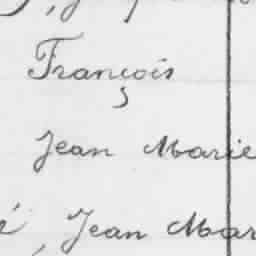 François
Jean Marie
é, Jean Mar